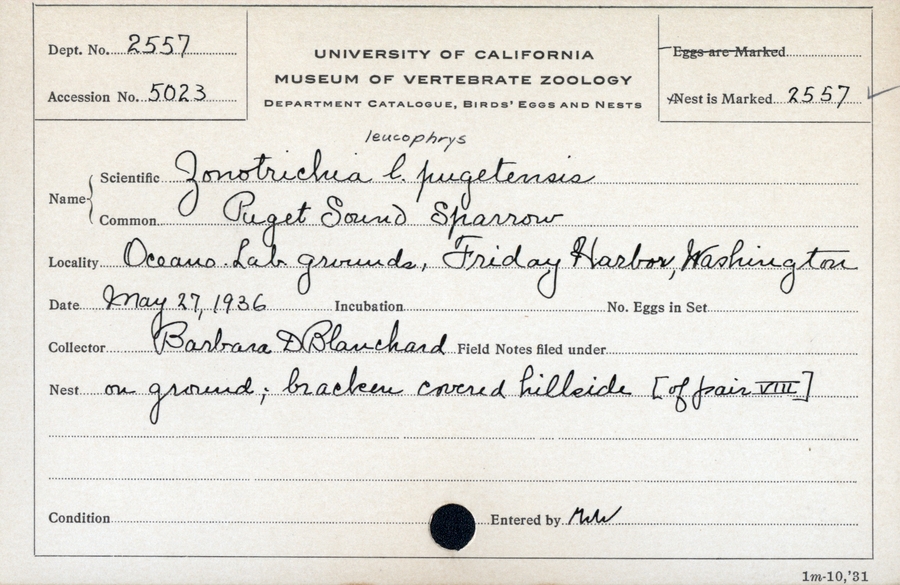 Dept. No. 2557
UNIVERSITY OF CALIFORNIA
MUSEUM OF VERTEBRATE ZOOLOGY
DEPARTMENT CATALOGUE, BIRDS' EGGS AND NESTS
Eggs are Marked
Accession No. 5023
Nest is Marked 2557
leucophrys
Name { Scientific Zonotrichia l. pugetensis
Common Puget Sound Sparrow
Locality Oceano. Lab grounds, Friday Harbor, Washington
Date May 27, 1936 Incubation No. Eggs in Set
Collector Barbara D Blanchard Field Notes filed under
Nest on ground; bracken covered hillside [of pair VIII]
Condition Entered by
1m-10,'31